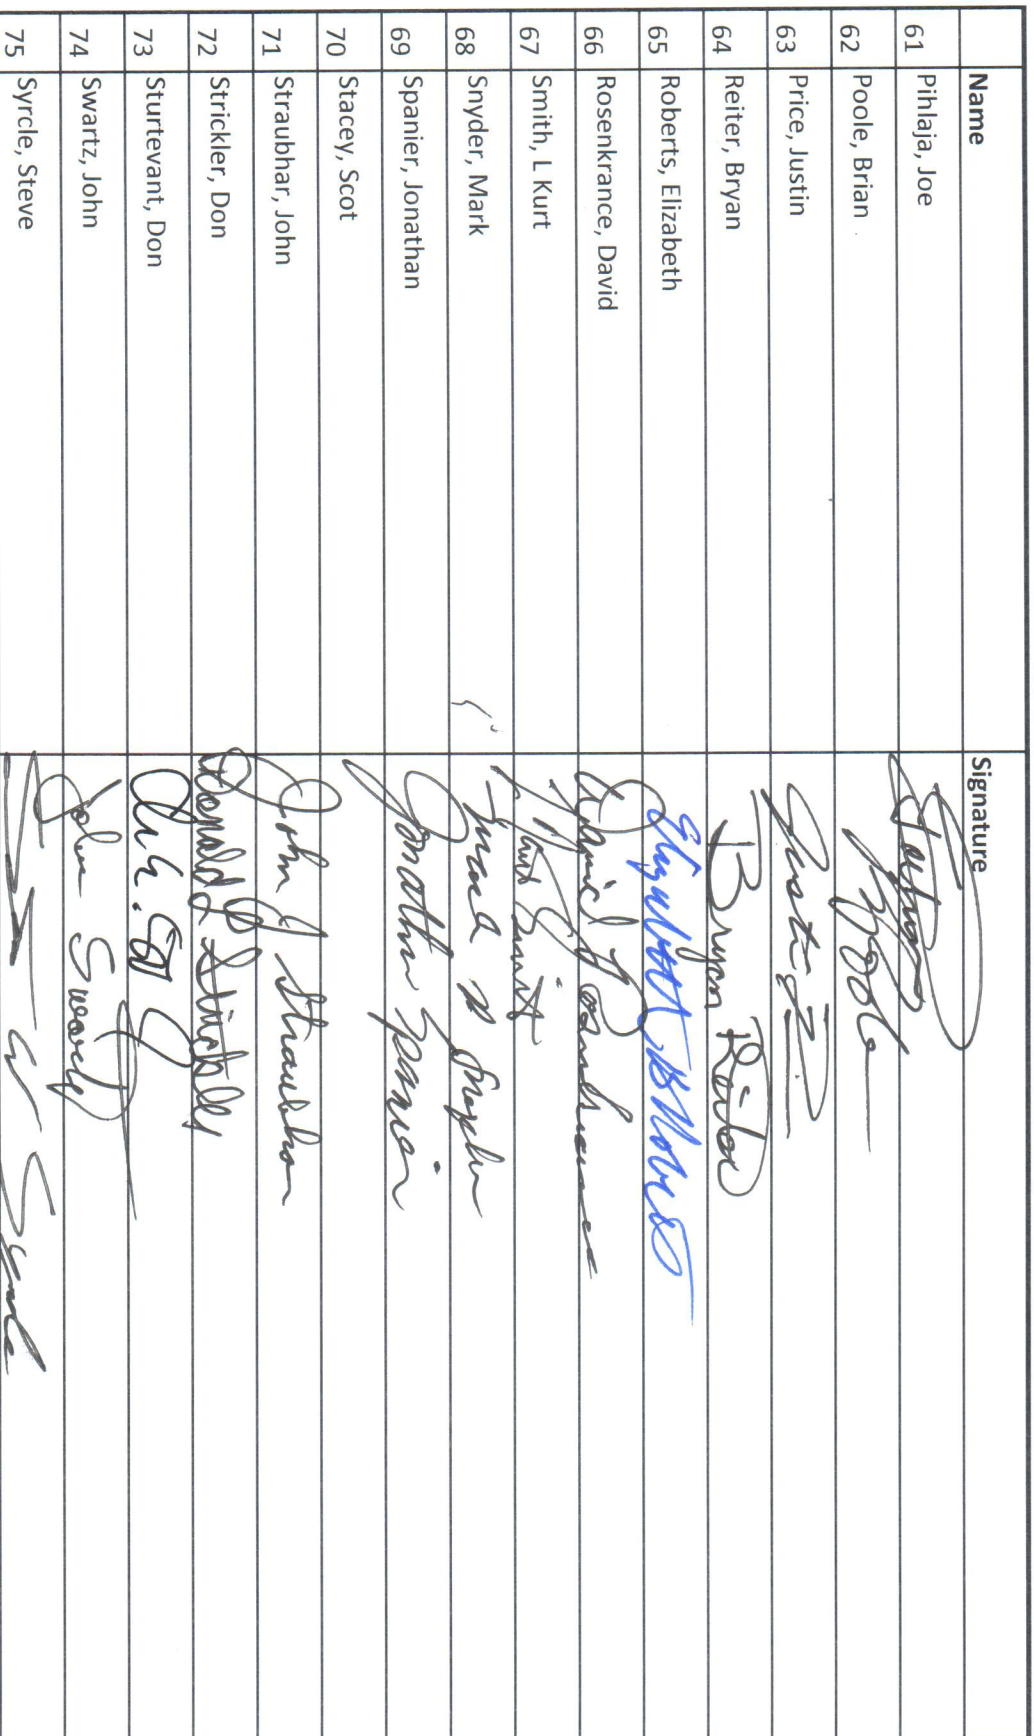 Name Signature
61 Pihlaja, Joe
62 Poole, Brian
63 Price, Justin
64 Reiter, Bryan Bryan Reiter
65 Roberts, Elizabeth
66 Rosenkrance, David
67 Smith, L Kurt
68 Snyder, Mark
69 Spanier, Jonathan Jonathan Spanier
70 Stacey, Scot
71 Straubhar, John John J Straubhar
72 Strickler, Don Donald
73 Sturtevant, Don
74 Swartz, John John Swartz
75 Syrcle, Steve